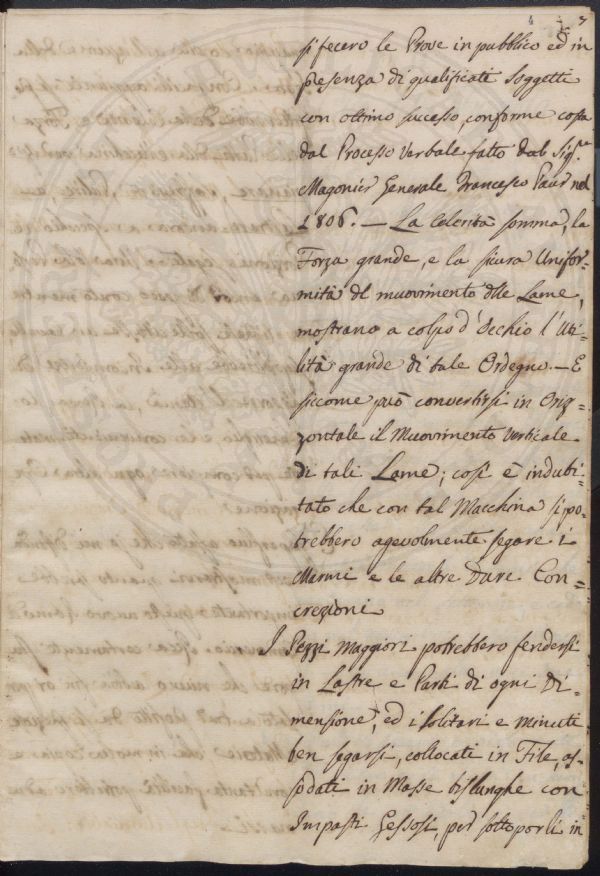 3
si fecero le Prove in pubblico ed in
presenza di qualificati Soggetti
con ottimo successo, conforme costa
dal Processo Verbale fatto dal Sig.r
Magonier Generale Francesco Paur nel
1806. — La Celerità somma, la
Forza grande, e la sicura Unifor=
mità del muovimento delle Lame,
mostrano a colpo d'Occhio l'Uti=
lità grande di tale Ordegno. — E
siccome può convertirsi in Oriz=
zontale il Muovimento Verticale
di tali Lame; così è indubi=
tato che con tal Macchina si po=
trebbero agevolmente segare i
Marmi e le altre Dure Con=
crezioni
I Pezzi Maggiori potrebbero fendersi
in Lastre e Parti di ogni Di=
mensione, ed i solitari e minuti
ben segarsi, collocati in File, as=
sodati in Masse bislunghe con
Impasti Gessosi, per sottoporli in